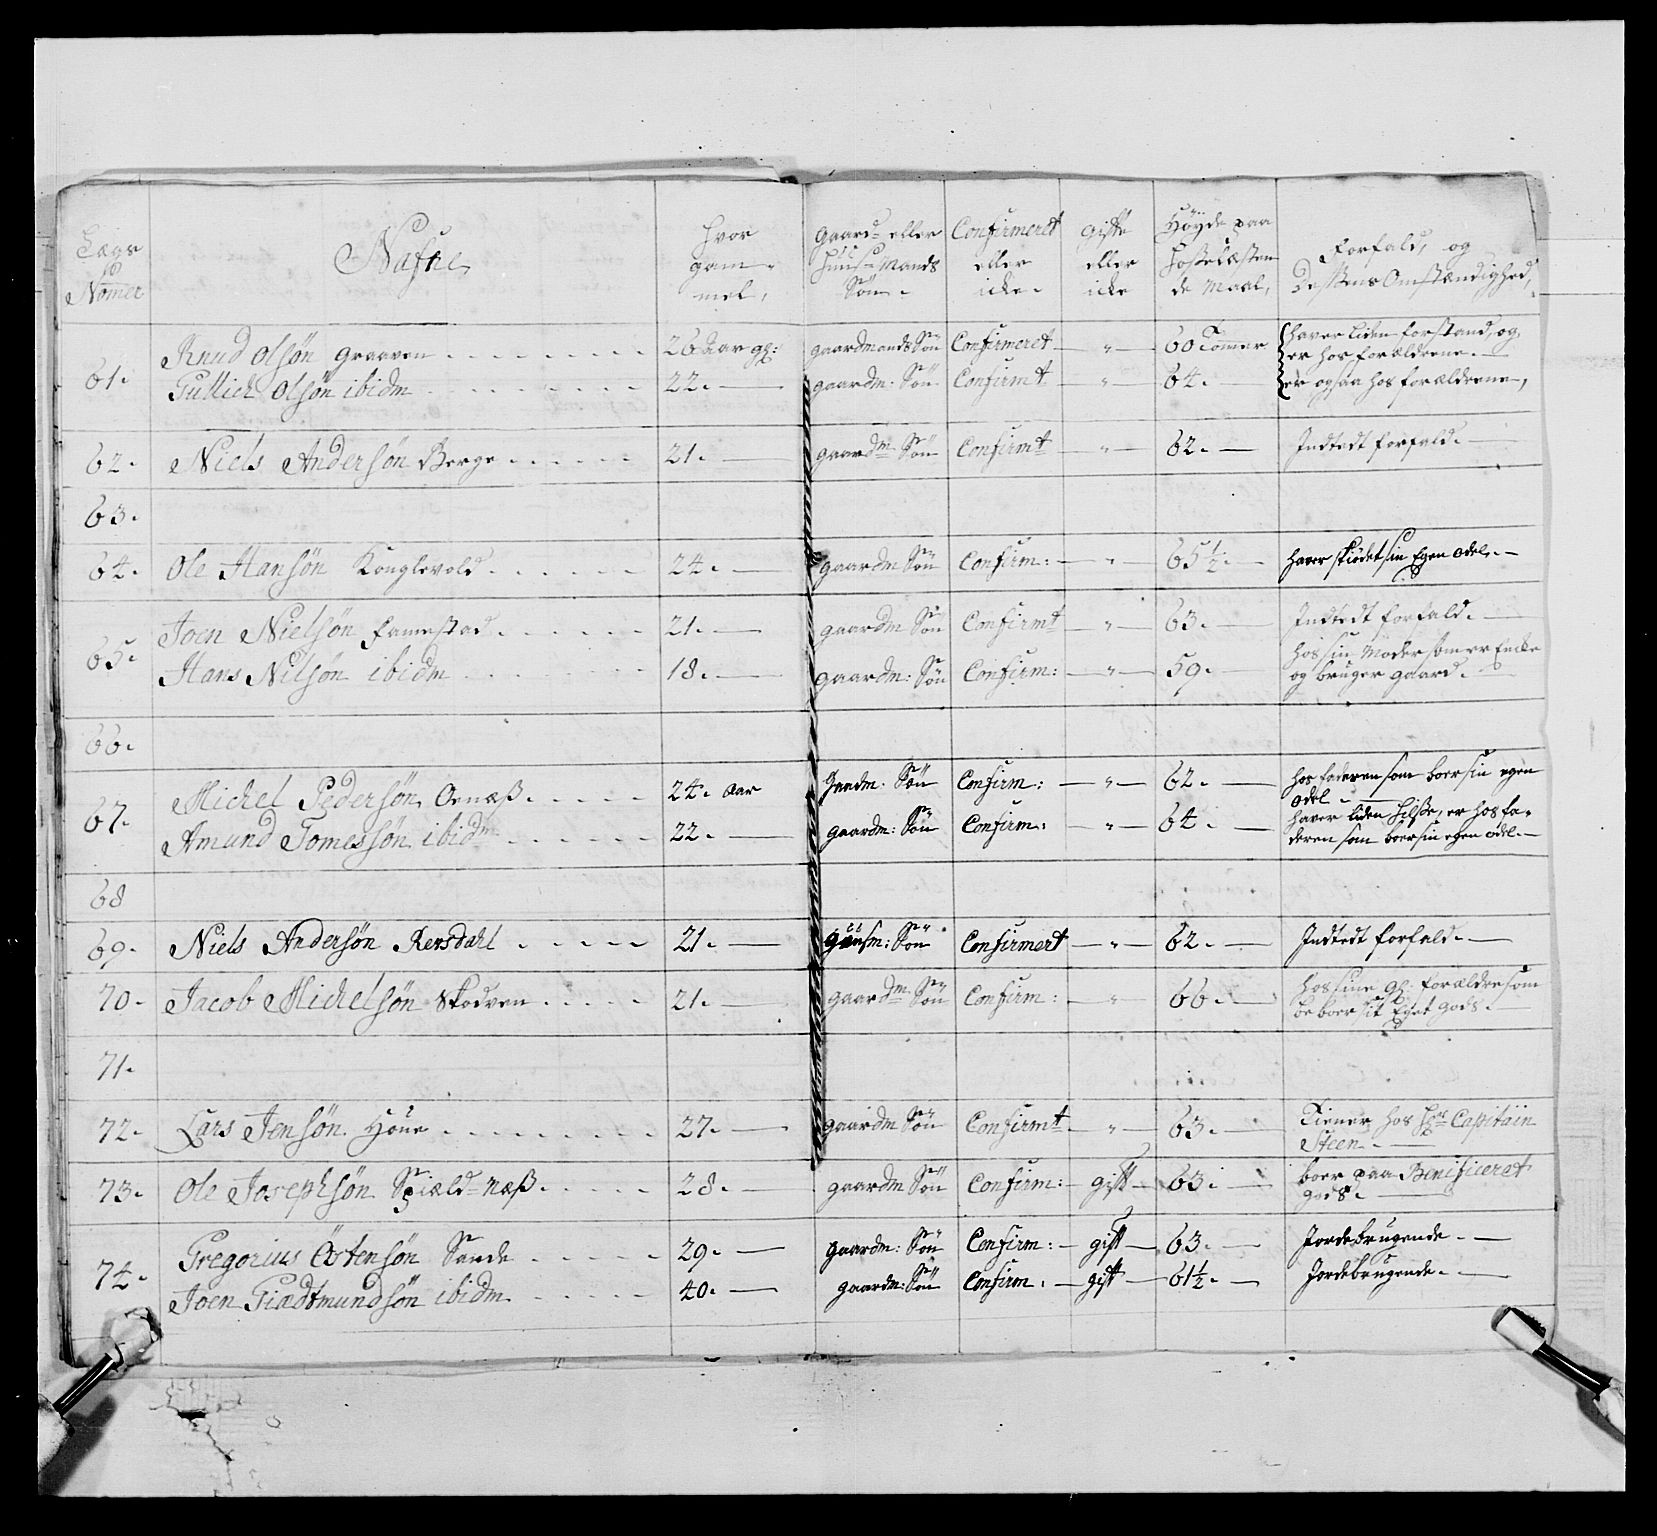 Lægs No Nomer | Nafne | Hvor gammel, | Gaard- eller Huus-Mands Søn. | Confirmeret eller icke. | Gifte eller icke | Høyde paa Hosselæsten de Maal, | Forfald, og Dessens Omstændighed,
61. | Knud Olsøn Graaven | 26 Aar gl: | Gaardmands Søn | Confirmeret | " | 60 Tomer | haver liden forstand, og er hos forældrene.
Gullich Olsøn ibidm | 22. | gaardm: Søn | Confirmt | " | 64. | er ogsaa hos forældrene,
62. | Niels Andersøn Berge | 21. | gaardm Søn | Confirmt | " | 62. | Indtedt forfald.
63.
64. | Ole Hansøn Konglevold | 24. | gaardm Søn | Confirm: | " | 65½. | haver skiødet sin Egen odel.
65. | Joen Nielsøn Famestad | 21. | gaardm Søn | Confirmt | " | 63. | Indtedt forfald.
Hans Nilsøn ibidm | 18. | gaardm: Søn | Confirm: | " | 59. | hos sin Moder som er Encke og bruger gaard.
66.
67. | Michel Pedersøn Ornæss | 24. Aar | Gaadm: Søn | Confirm: | " | 62. | hos faderen som boer sin egen odel.
Amund Tomessøn ibidm | 22. | gaardm: Søn | Confirm: | " | 64. | haver liden hilsse, er hos faderen som boer sin egen odel.
68
69. | Niels Andersøn Rersdahl | 21. | Huusm: Søn | Confirmert | " | 62. | Indtedt forfald.
70. | Jacob Michelsøn Skodven | 21. | gaardm Søn | Confirm: | " | 66. | hos sine gl: forældre som beboer sit Eget gods.
71.
72. | Lars Jensøn Houe | 27. | gaardm Søn | Confirmt | " | 63. | Tiener hos Hr Capitain Steen.
73. | Ole Josephsøn Spiæld-næss | 28. | gaardm Søn | Confirm: | gift | 63. | boer paa Benificeret gods.
74. | Gregorius Østensøn Sande | 29. | gaardm: Søn | Confirm: | gift | 63. | Jordebrugende.
Joen Giædtmundsøn ibidm | 40. | gaardm: Søn | Confirm. | gift | 61½. | Jordebrugende.